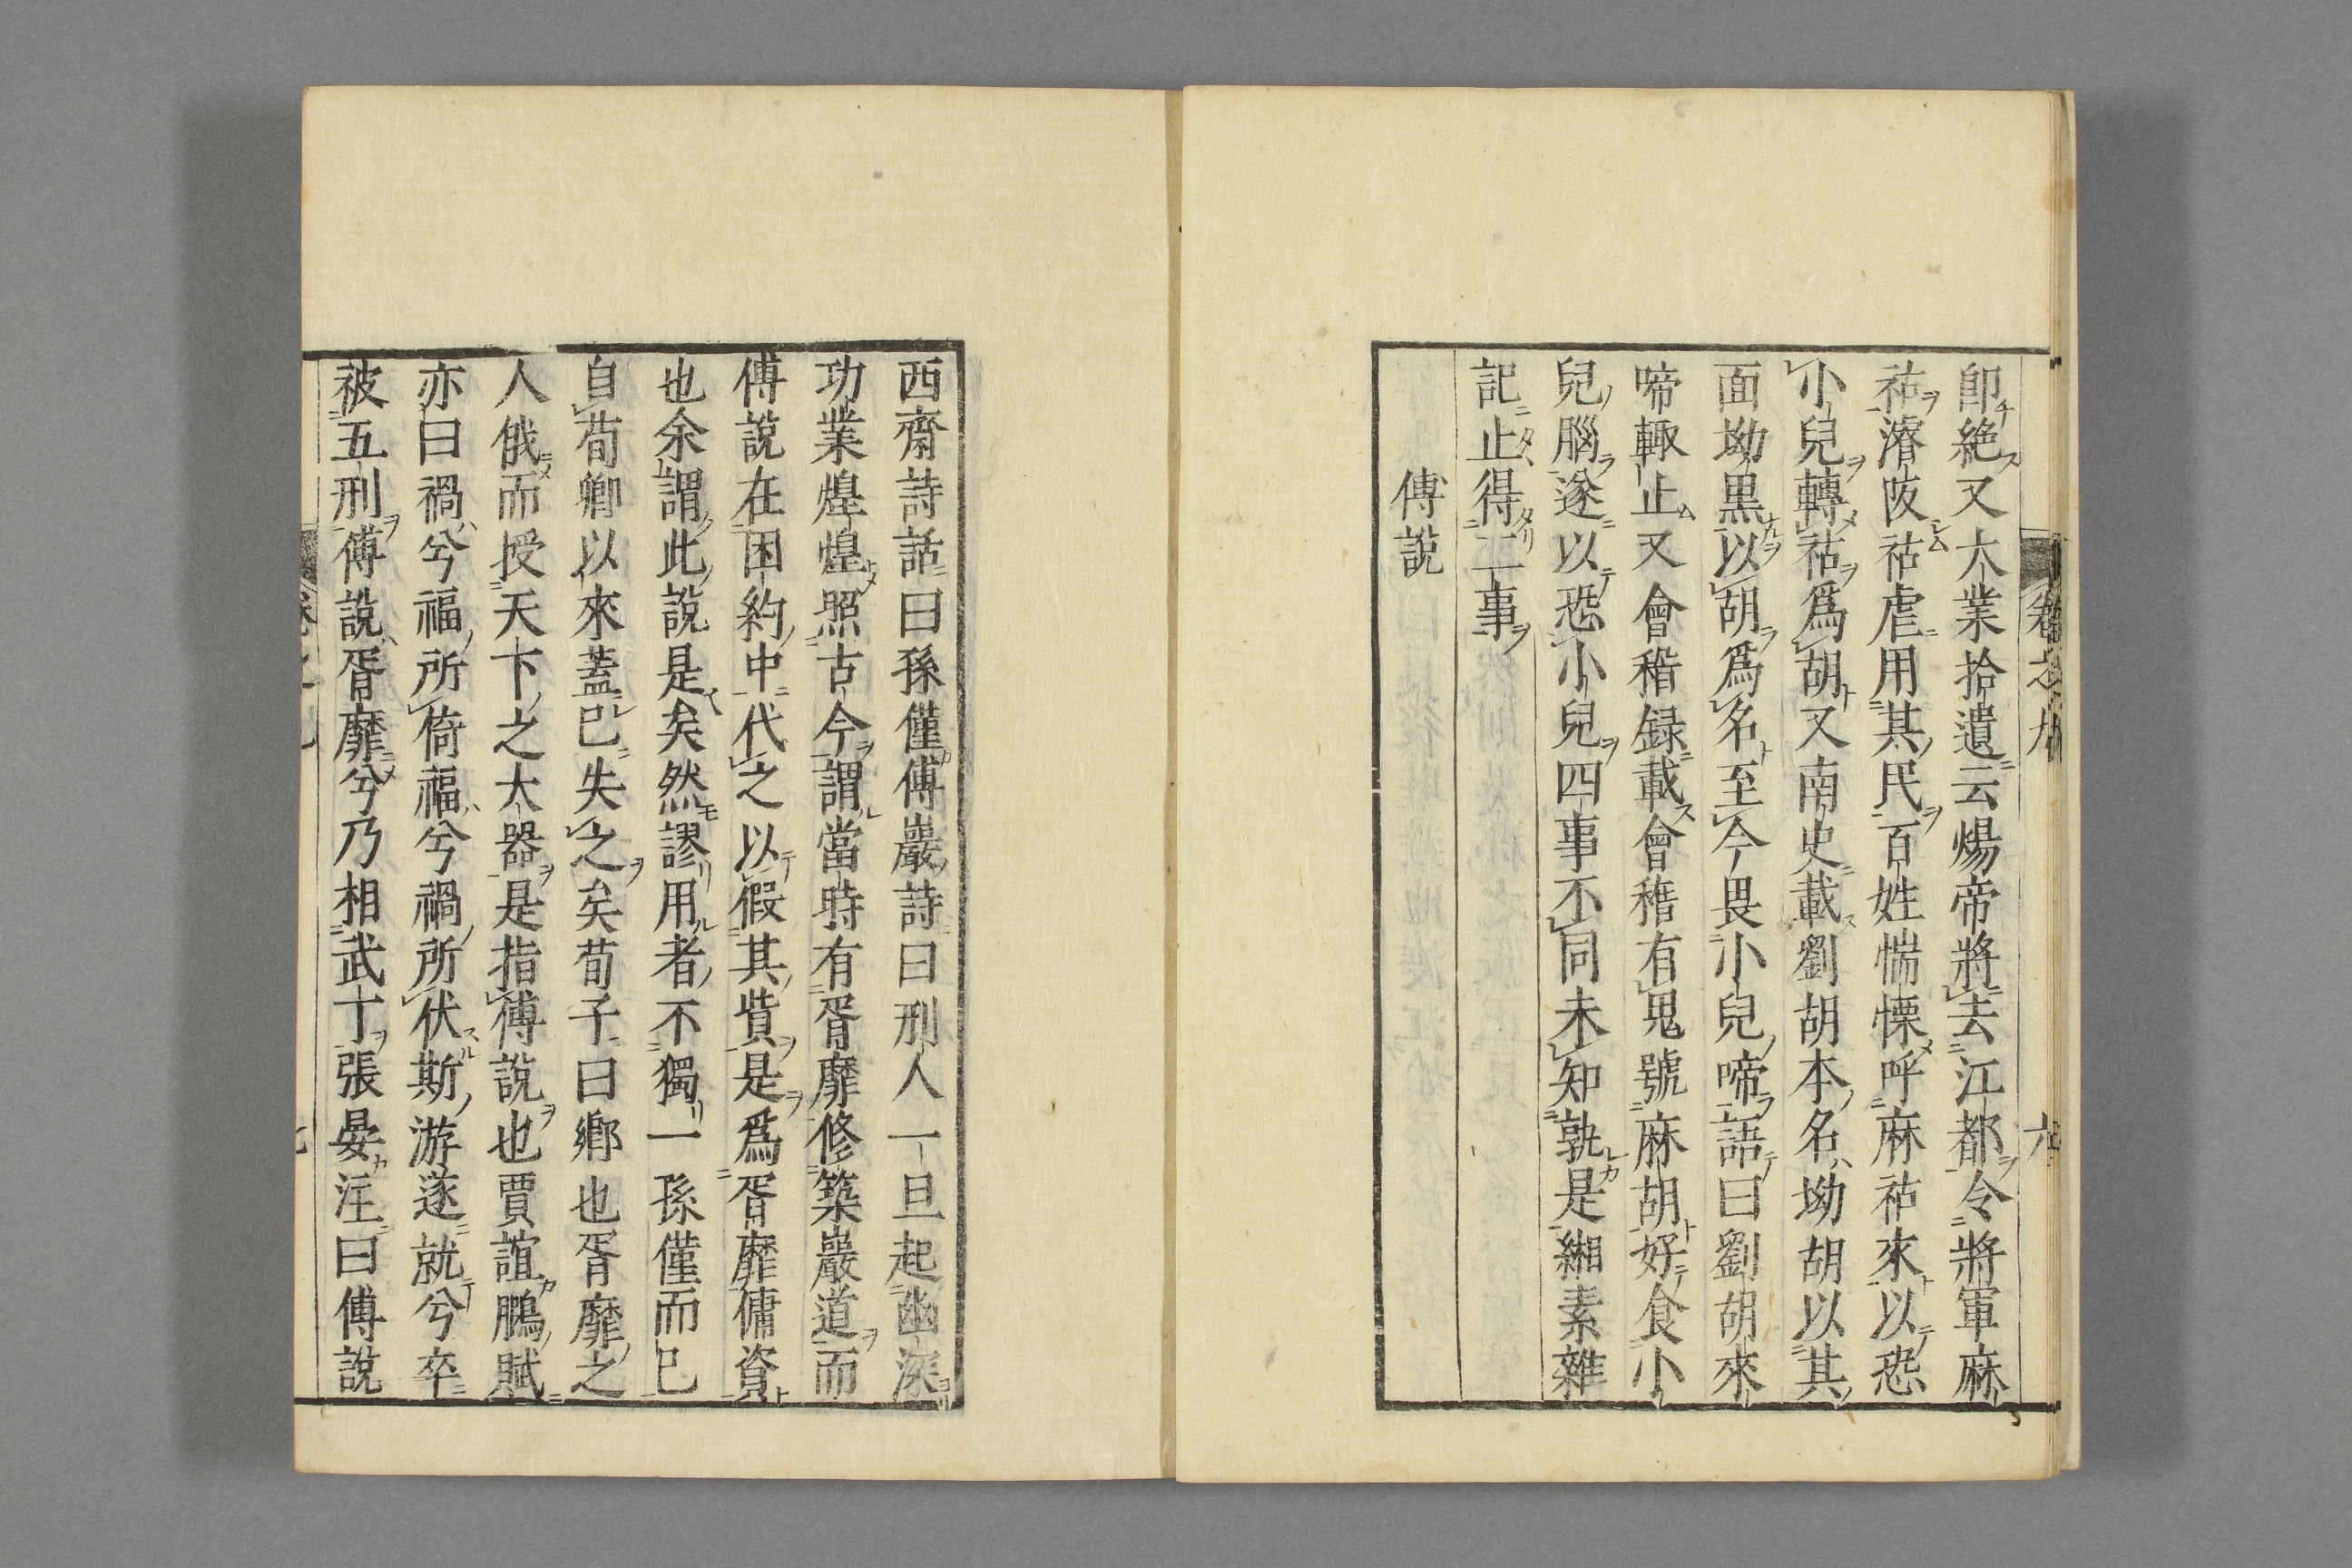 卷之九 六
即絶又大業拾遺云煬帝將去江都令將軍麻
祜濬阪祜虐用其民百姓惴慄呼麻祜來以恐
小兒轉祜爲胡又南史載劉胡本名坳胡以其
面坳黒以胡爲名至今畏小兒啼語曰劉胡來
啼輙止又會稽録載會稽有鬼號麻胡好食小
兒腦遂以恐小兒四事不同未知孰是緗素雜
記止得二事
傅說
西齋詩話曰孫僅傅巖詩曰刑人一旦起幽深
功業煌煌照古今謂當時有胥靡修築巖道而
傅說在困約中代之以假其貲是爲胥靡傭資
也余謂此說是矣然謬用者不獨一孫僅而已
自荀卿以來蓋已失之矣荀子曰鄕也胥靡之
人俄而授天下之大器是指傅說也賈誼鵩賦
亦曰禍兮福所倚福兮禍所伏斯游遂就兮卒
被五刑傅說胥靡兮乃相武丁張晏注曰傅說